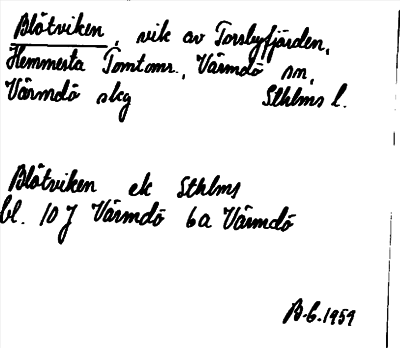 Blåtviken, vik av Torsbyfjärden,
Hemmesta Tomtomr., Värmdö sn,
Värmdö skg Sthlms l.
Blåtviken ek Sthlms
bl. 10 J Värmdö 6a Värmdö
B-6.1959